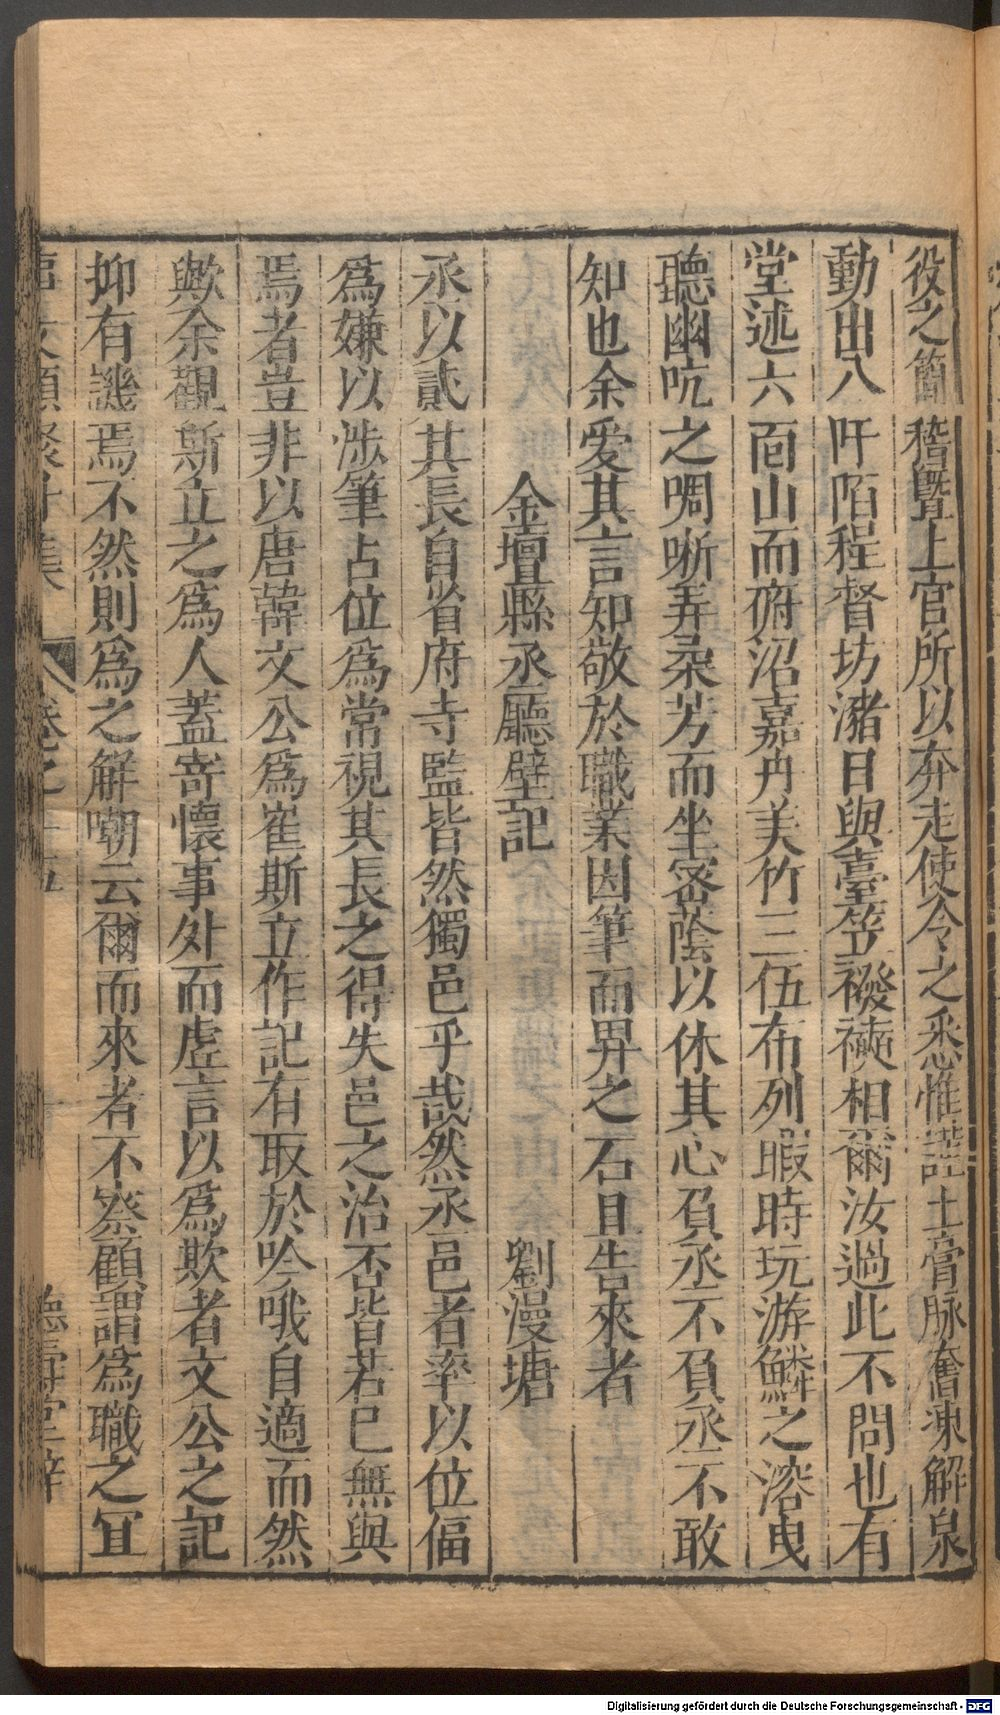 役之簡稽暨上官所以奔走使令之悉惟謊土膏脉奮凍解泉
動出入阡陌程督坊瀦日與臺笠襏襫相爾汝過此不問也有
堂述六面山而俯沼嘉丹美竹三伍布列暇時玩游鱗之溶曳
聽幽吭之啁哳弄朵芳而坐密蔭以休其心負丞不負丞不敢
知也余爰其言知敬於職業因筆而畀之石且告來者
金壇縣丞廳壁記 劉漫塘
丞以貳其長自省府寺監皆然獨邑乎哉然丞邑者率以位偪
爲嫌以涉筆占位爲常視其長之得失邑之治否皆若已無與
焉者豈非以唐韓文公爲崔斯立作記有取於吟哦自適而然
歟余觀斯立之爲人蓋寄懷事外而虛言以爲欺者文公之記
抑有譏焉不然則爲之解嘲云爾而來者不察顧謂爲職之冝
事文類聚外集 卷之十五 德壽堂梓
Digitalisierung gefördert durch die Deutsche Forschungsgemeinschaft - DFG